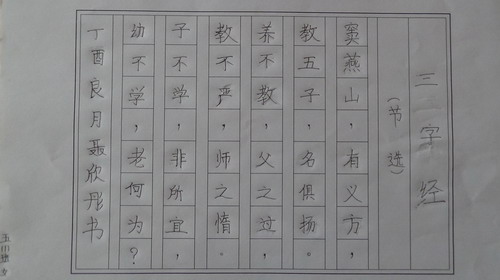 三字经
（节选）
窦燕山，有义方，
教五子，名俱扬。
养不教，父之过。
教不严，师之惰。
子不学，非所宜，
幼不学，老何为？
丁酉良月聂欣彤书